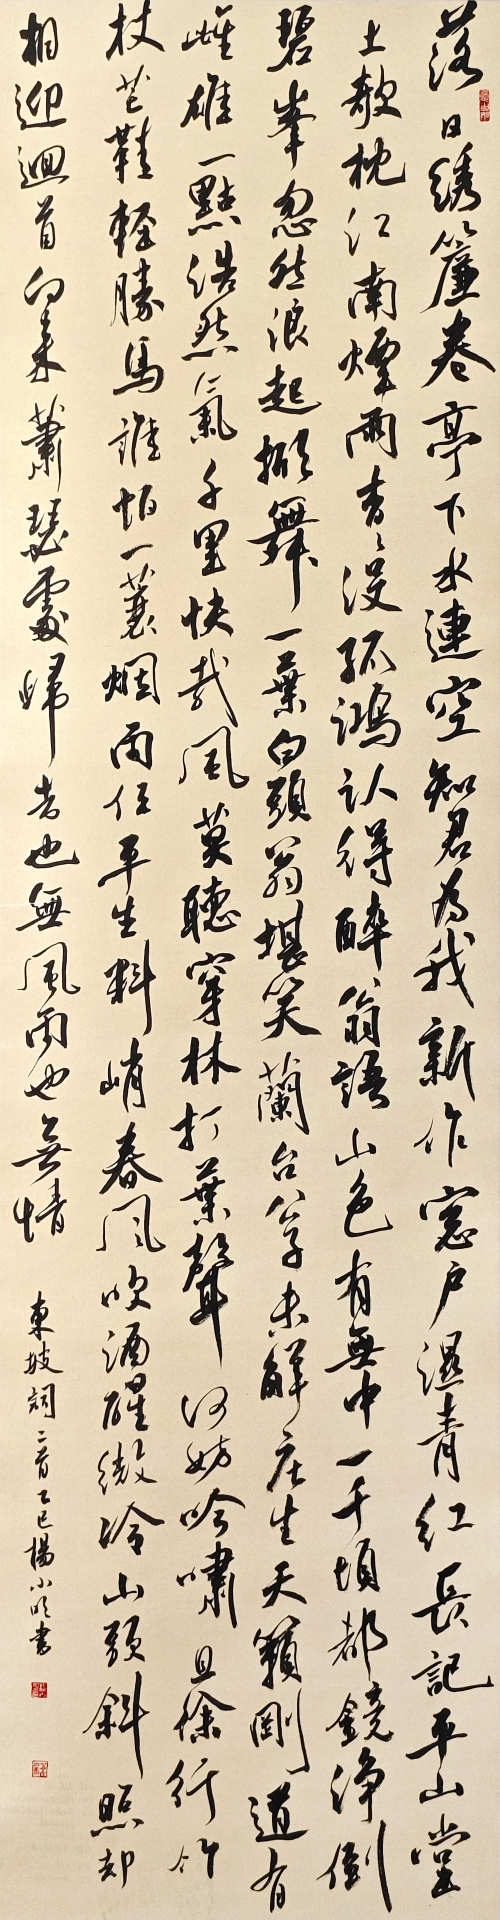 落日绣簾卷亭下水連空知君为我新作窓戶濕青红長記平山堂
上欹枕江南煙雨杳杳没孤鴻认得醉翁語山色有無中一千頃都鏡浄倒
碧峯忽然浪起掀舞一葉白頭翁堪笑蘭台公子未解庄生天籟剛道有
雌雄一點浩然氣千里快哉風莫聽穿林打葉聲何妨吟嘯且徐行竹
杖芒鞋輕勝馬誰怕一蓑烟雨任平生料峭春风吹酒醒微冷山頭斜照却
相迎迴首向来蕭瑟處歸去也無風雨也无情
東坡詞二首乙巳楊小旺書